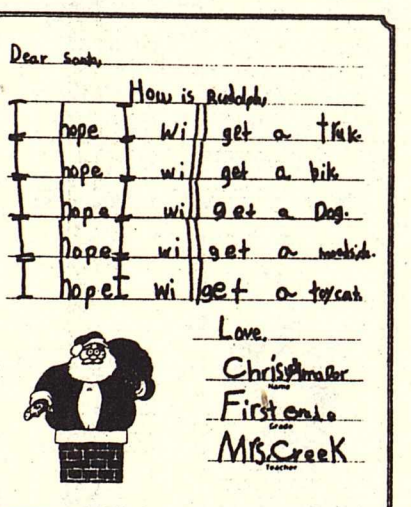 Dear Santa,
How is Rudolph,
I hope I will get a truk.
I hope I will get a bik.
I hope I will get a Dog.
I hope I will get a
I hope I will get a toycat.
Love,
Chris
Name
First
Grade
Mrs. Creek
Teacher